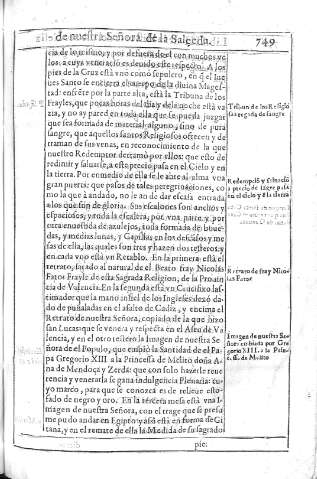 de nuestra Señora de la Salceda. 749
cia de lo mismo, y por defuera de el con muchos ve
los, a cuya veneracion es devido este respecto. A los
pies de la Cruz està vno como sepulcro, en q̃ el Iue
ves Santo se entierra el cuerpo de la diuina Magest
tad: enfrente por la parte alta, està la Tribuna de los
Frayles, que pocas horas del dia y de la noche està va
zia, y no ay pared en toda ella que se pueda juzgar
que sea formada de material alguno, sino de pura
sangre, que aquellos santos Religiosos ofrecen y de
rraman de sus venas, en reconocimiento de la que
nuestro Redemptor derramò por ellos: que esto de
redimir y saluarse, a este precio passa en el Cielo y en
la tierra. Por en medio de ella se le abre al alma vna
gran puerta: que passos de tales peregrinaciones, co
mo la que à andado, no le an de dar escasa entrada
a los que son de gloria. Sus escalones son anchos y
espaciosos, y toda la escalera, por vna parte y por
otra enuestida de azulejos, toda formada de boue-
das, y medias lunas, y Capillas en los descansos y me
sas de ella, las quales son tres y hazen dos testeros: y
en cada vno està vn Retablo. En la primera està el
retrato, sacado al natural de el Beato fray Nicolas
Fator Frayle de esta Sagrada Religion, de la Prouin
cia de Valencia. En la segunda està vn Crucifixo las-
timado que la mano infiel de los Ingleses dexò da-
do de puñaladas en el assalto de Cadiz, y encima el
Retrato de nuestra Señora, copiado de la que hizo
san Lucas que se venera y respecta en el Aseo de Va
lencia, y en el otro testero la Imagen de nuestra Se
ñora de el Populo, que embiò la Santidad de el Pa
pa Gregorio XIII a la Princesa de Melito doña A-
na de Mendoça y Zerda: que con solo hazerle reue
rencia y venerarla se gana indulgencia Plenaria: cu
yo marco, para que se conozca es de relieue esto-
fado de negro y oro. En la tercera mesa està vna I-
magen de nuestra Señora, con el trage que se presu
me pudo andar en Egipto y assi està en forma de Gi
tana, y en el remate de ella la Medida de su sagrado
pie:
Tribuna de los Religio
sos regada de sangre
Redempciõ y saluaciõ
a precio de sangre passa
en el cielo y en la tierra
Retrato de fray Nico-
las Fator
Imagen de nuestra Se-
ñora embiada por Gre
gorio XIII. a la Prin-
cesa de Melito